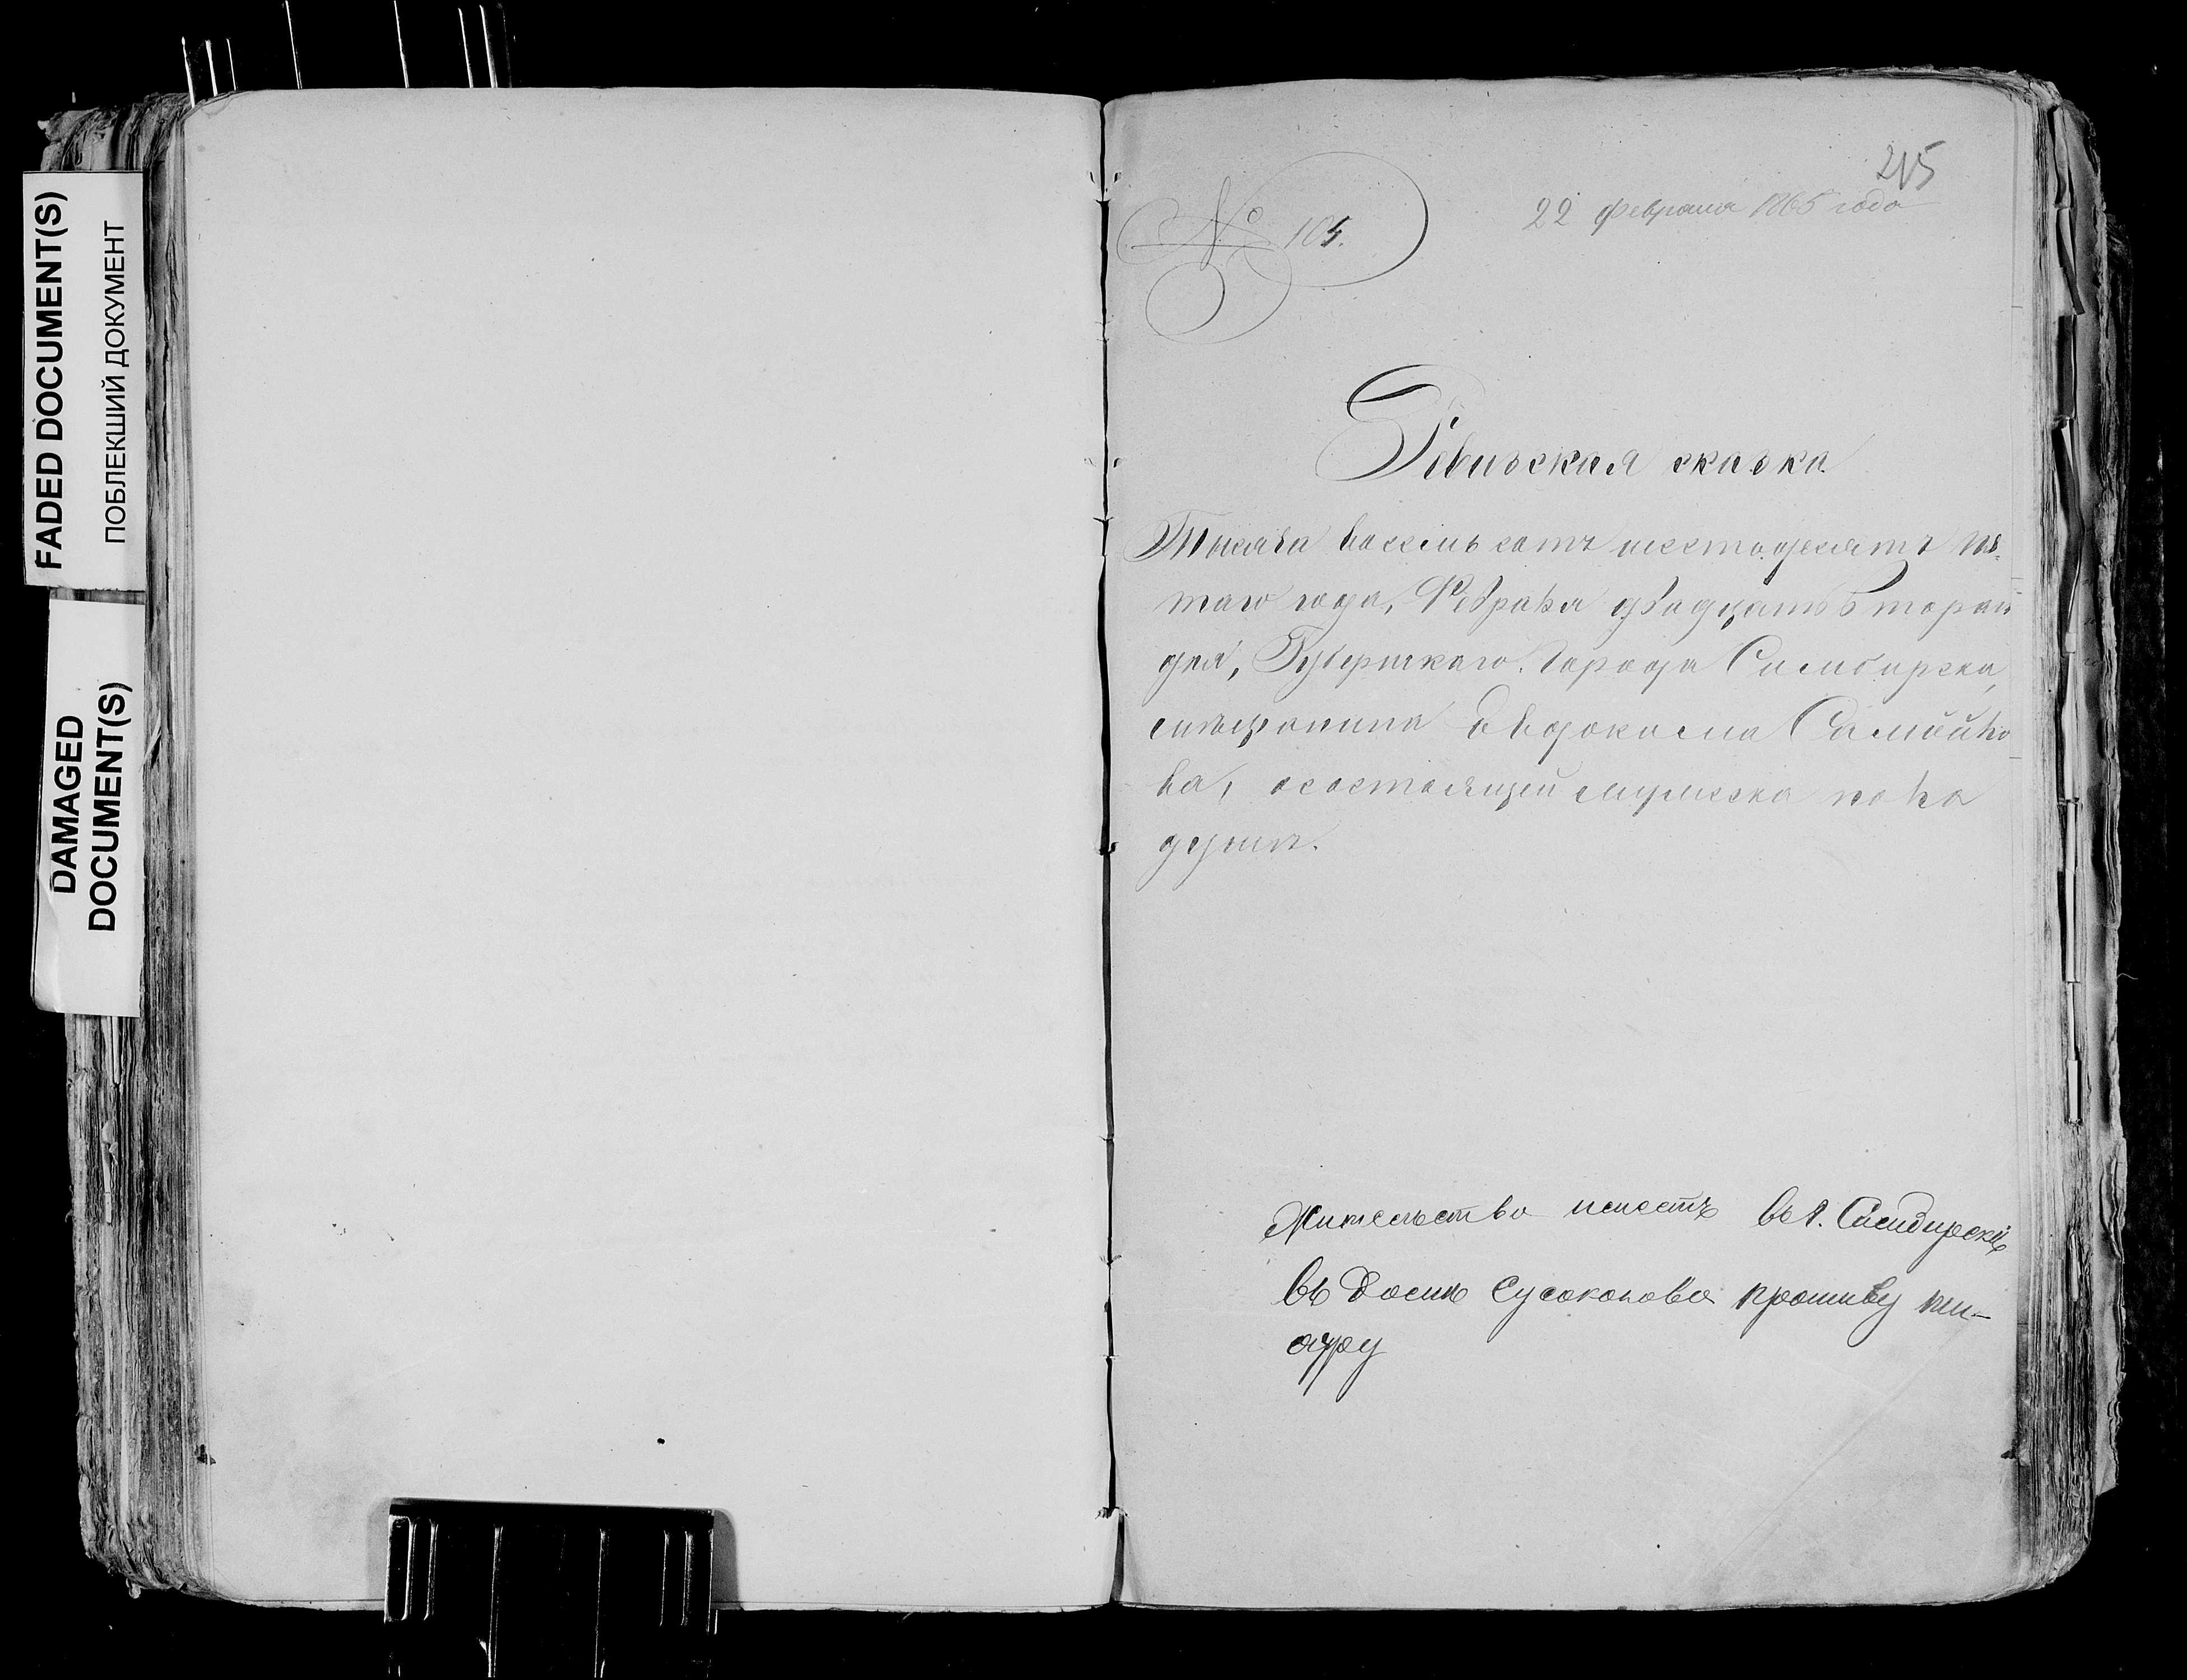 FADED DOCUMENT(S)
ПОБЛЕКШИЙ ДОКУМЕНТ
DAMAGED
DOCUMENT(S)
215
№ 104.
22 февраля 1865 года
Ревизская сказка
Тысяча восемь сотъ шестьдесятъ пя-
таго года, Февраля двадцать втораго
дня, Губернскаго города Симбирска,
мѣщанина Евдокима Самойло
ва, о состоящей мужеска пола
душѣ.
Жительство имѣетъ въ г. Симбирскѣ
въ домѣ противу те-
атру